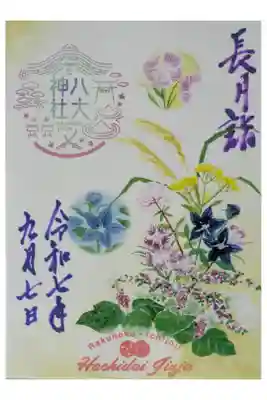 長月詣
八大
神社
令和七年
九月七日
Rakuhoku・Ichijoji
Hachidai Jinja